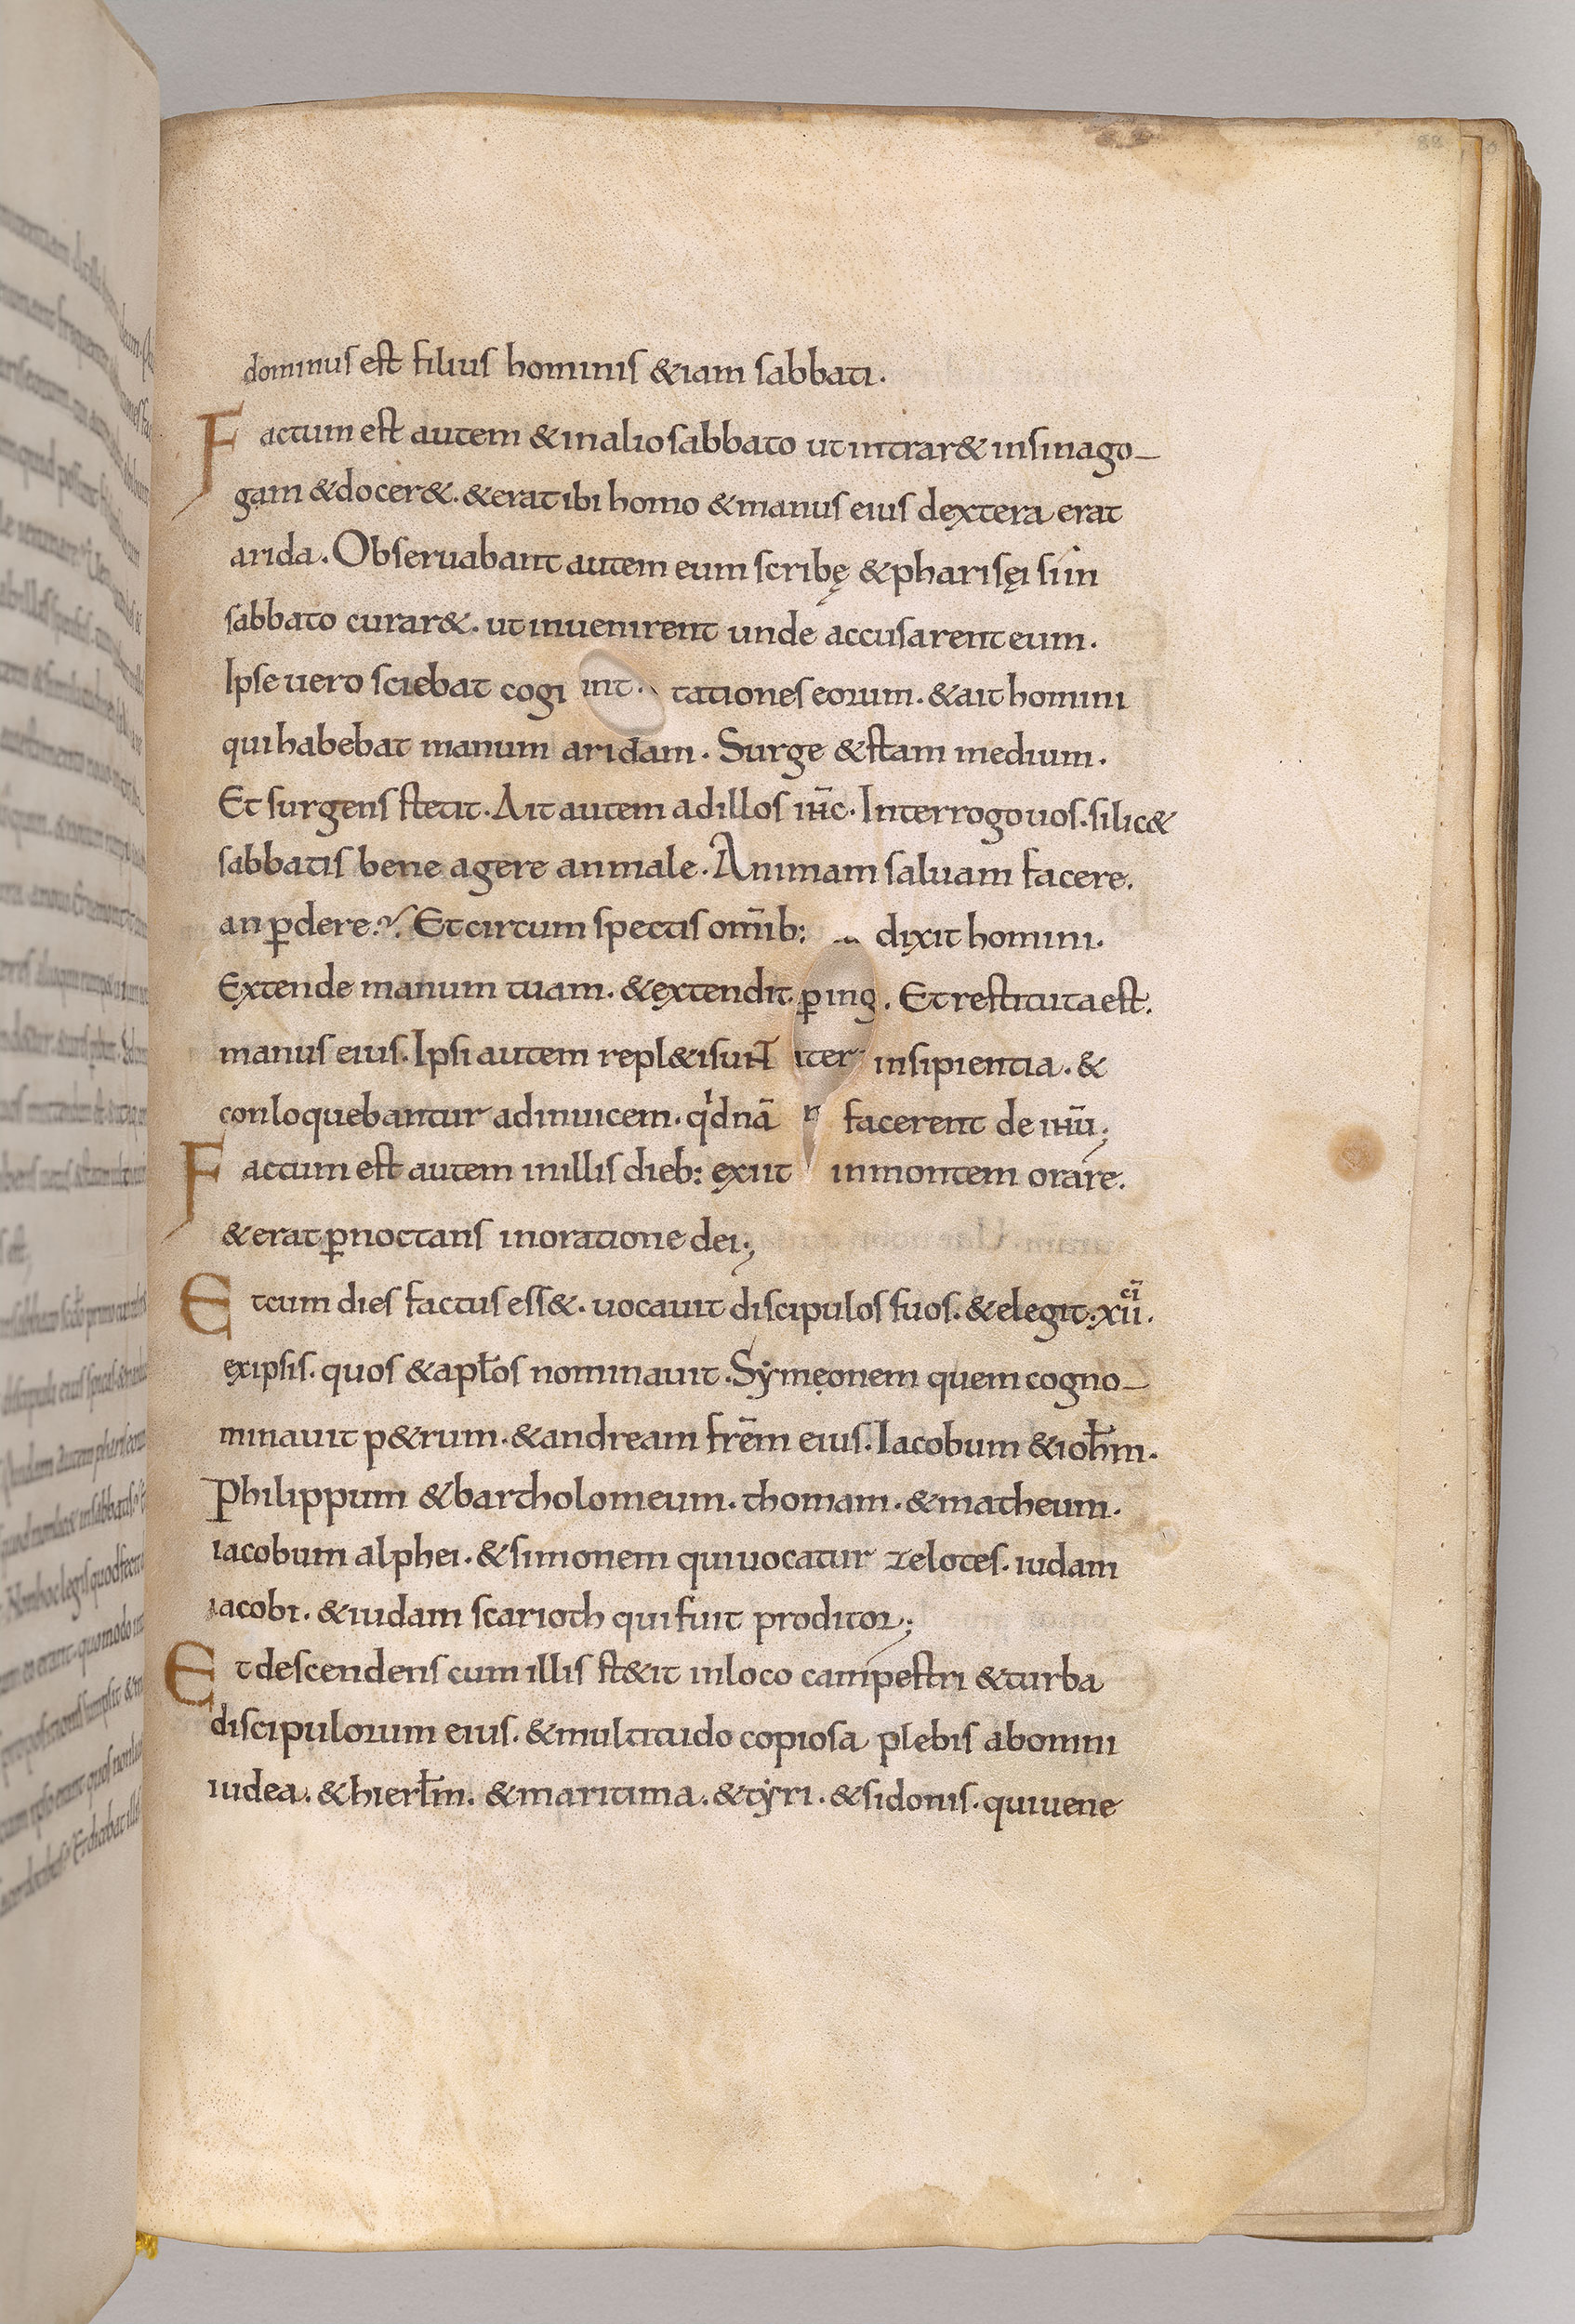 dominus est filius hominis &iam sabbati.
Factum est autem &inalio sabbato ut intrar& insinago-
gam &docer&. &erat ibi homo &manus eius dextera erat
arida. Obseruabant autem eum scribę &pharisęi si in
sabbato curar&. ut inuenirent unde accusarent eum.
Ipse uero sciebat cogi tationes eorum. &ait homini
qui habebat manum aridam. Surge &sta in medium.
Et surgens stetit. Ait autem ad illos iħc̄. Interrogo uos. si lic&
sabbatis bene agere an male. Animam saluam facere.
an ꝑdere? Et circum spectis om̄ib: dixit homini.
Extende manum tuam. &extendit. Et restituta est.
manus eius. Ipsi autem repl&i sunt insipientia. &
conloquebantur adinuicem. qͥdnā facerent de iħū;
Factum est autem inillis dieb: exiit inmontem orare.
&erat ꝑnoctans inoratione dei;
Et cum dies factus ess&. uocauit discipulos suos. &elegit. xii͞.
exipsis. quos &apłos nominauit. Symeonem quem cogno-
minauit p&rum. &andream fr̄em eius. Iacobum &ioħm.
Philippum &bartholomeum. thomam. &matheum.
iacobum alphei. &simonem qui uocatur zelotes. iudam
iacobi. &iudam scarioth qui fuit proditor;
Et descendens cum illis st&it inloco campestri &turba
discipulorum eius. &multitudo copiosa plebis abomni
iudea. &hierłm. &maritima. &tẏri. &sidonis. qui uene